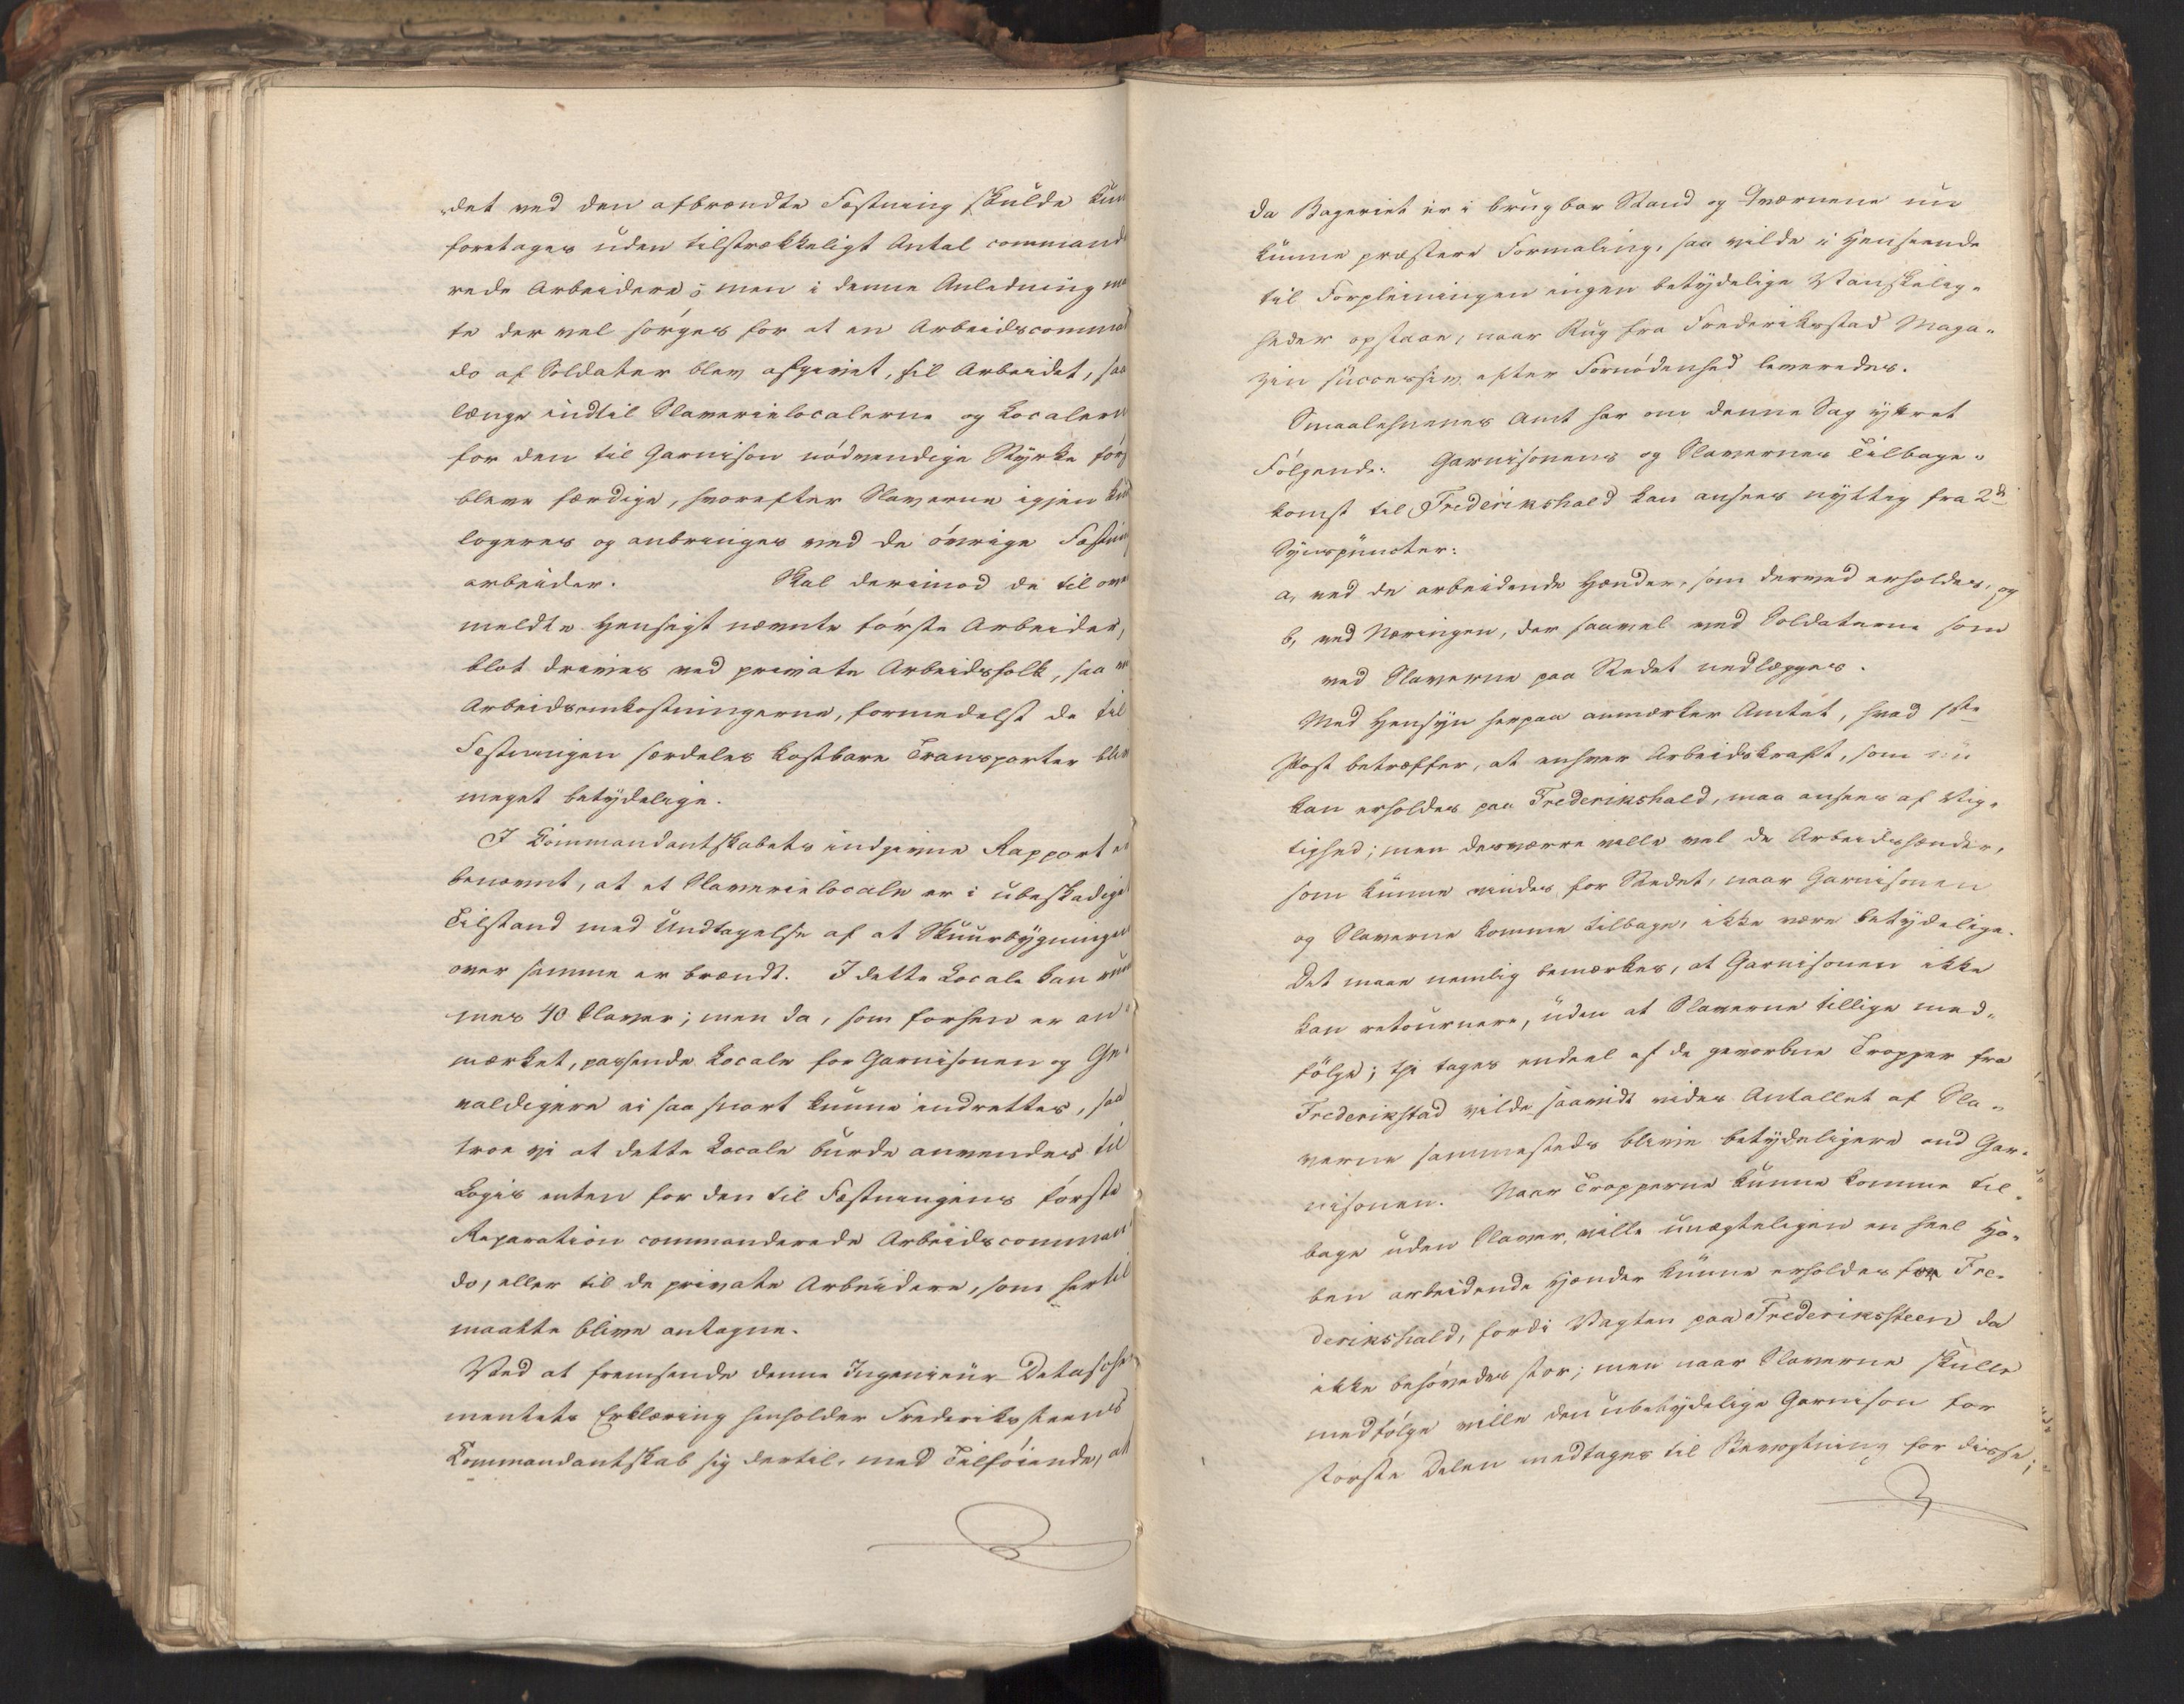 det ved den afbrændte Fæstning skulde kun
foretages uden tilstrækkeligt Antal command
rede Arbeidere; men i denne Anledning
te der vel sørges for at en Arbeidscomman
do af Soldater blev afgivet, til Arbeidet, saa
længe indtil Slaverielocalerne og Localern
for den til Garnison nödvendige Styrke förs
bleve færdige, hvorefter Slaverne igjen
logeres og anbringes ved de övrige Fæstnin
arbeider. Skal derimod de til ove
meldte Hensigt nævnte förste Arbeider,
blot drives ved private Arbeidsfolk, saa
Arbeidsomkostningerne, formedelst de til
Fæstningen særdeles kostbare Transporter bliv
meget betydelige.
I Commandantskabets indgivne Rapport er
benævnt, at et Slaverielocale er i ubeskadiget
Tilstand med Undtagelse af at Skuurbygningen
over samme er brændt. I dette Locale kan rum
mes 40 Slaver; men da, som forhen er an¬
mærket, passende Locale for Garnisonen og Ge¬
valdigere ei saa snart kunne indrettes, saa
troe vi at dette Locale burde anvendes til
Logis enten for den til Fæstningens förste
Reparation commanderede Arbeidscomman¬
do, eller til de private Arbeidere, som hertil
maatte blive antagne.
Ved at fremsende denne Ingenieur-Detasche
mentets Erklæring henholder Frederikssteens
Commandantskab sig dertil, med Tilföiende, at
da Bageriet er i brugbar Stand og Qværnene nu
kunne præstere Formaling, saa vilde i Henseende
til Forpleiningen ingen betydelige Vanskelig¬
heder opstaae, naar Rug fra Frederiksstad Maga¬
zin successiv efter Fornödenhed leveredes.
Smaalehnenes Amt har om denne Sag yttret
Fölgende: Garnisonens og Slavernes Tilbage¬
komst til Fredrikshald kan ansees nyttig fra 2de
Synspuncter:
a, ved de arbeidende Hænder, som derved erholdes, og
b, ved Næringen, der saavel ved Soldaterne som
ved Slaverne paa Stedet nedlægges.
Med Hensyn herpaa anmærker Amtet, hvad 1ste
Post betræffer, at enhver Arbeidskraft, som nu
kan erholdes paa Frederikshald, maa ansees af Vig¬
tighed; men desværre ville vel de Arbeidshænder,
som kunne vindes for Stedet, naar Garnisonen
og Slaverne komme tilbage, ikke være betydelige.
Det maae nemlig bemærkes, at Garnisonen ikke
kan retournere, uden at Slaverne tillige med¬
fölge; thi tages endeel af de gevorbne Tropper fra
Frederikstad vilde saavidt vides Antallet af Sla¬
verne sammesteds blive betydeligere end Gar¬
nisonen. Naar Tropperne kunne komme til¬
bage uden Slaver, ville unægteligen en heel Ho¬
ben arbeidende Hænder kunne erholdes for Fre¬
derikshald, fordi Vagten paa Frederikssteen da
ikke behövedes stor; men naar Slaverne skulle
medfölge ville den ubetydelige Garnison for
störste Delen medtages til Bevogtning for disse;